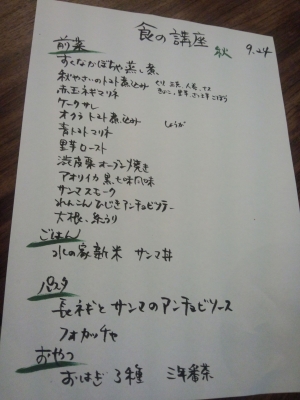 食の講座 秋 9.24
前菜
すくなかぼちゃ蒸し煮
秋やさいのトマト煮込み
赤玉ネギマリネ
ケークサレ
オクラトマト煮込み しょうが
青トマトマリネ
里芋ロースト
渋皮栗オーブン焼き
アオリイカ黒七味風味
サンマスモーク
れんこんひじきアンチョビソテー
大根、糸うり
ごはん
水の家新米 サンマ丼
パスタ
長ネギとサンマのアンチョビソース
フォカッチャ
おやつ
おはぎ3種 三年番茶